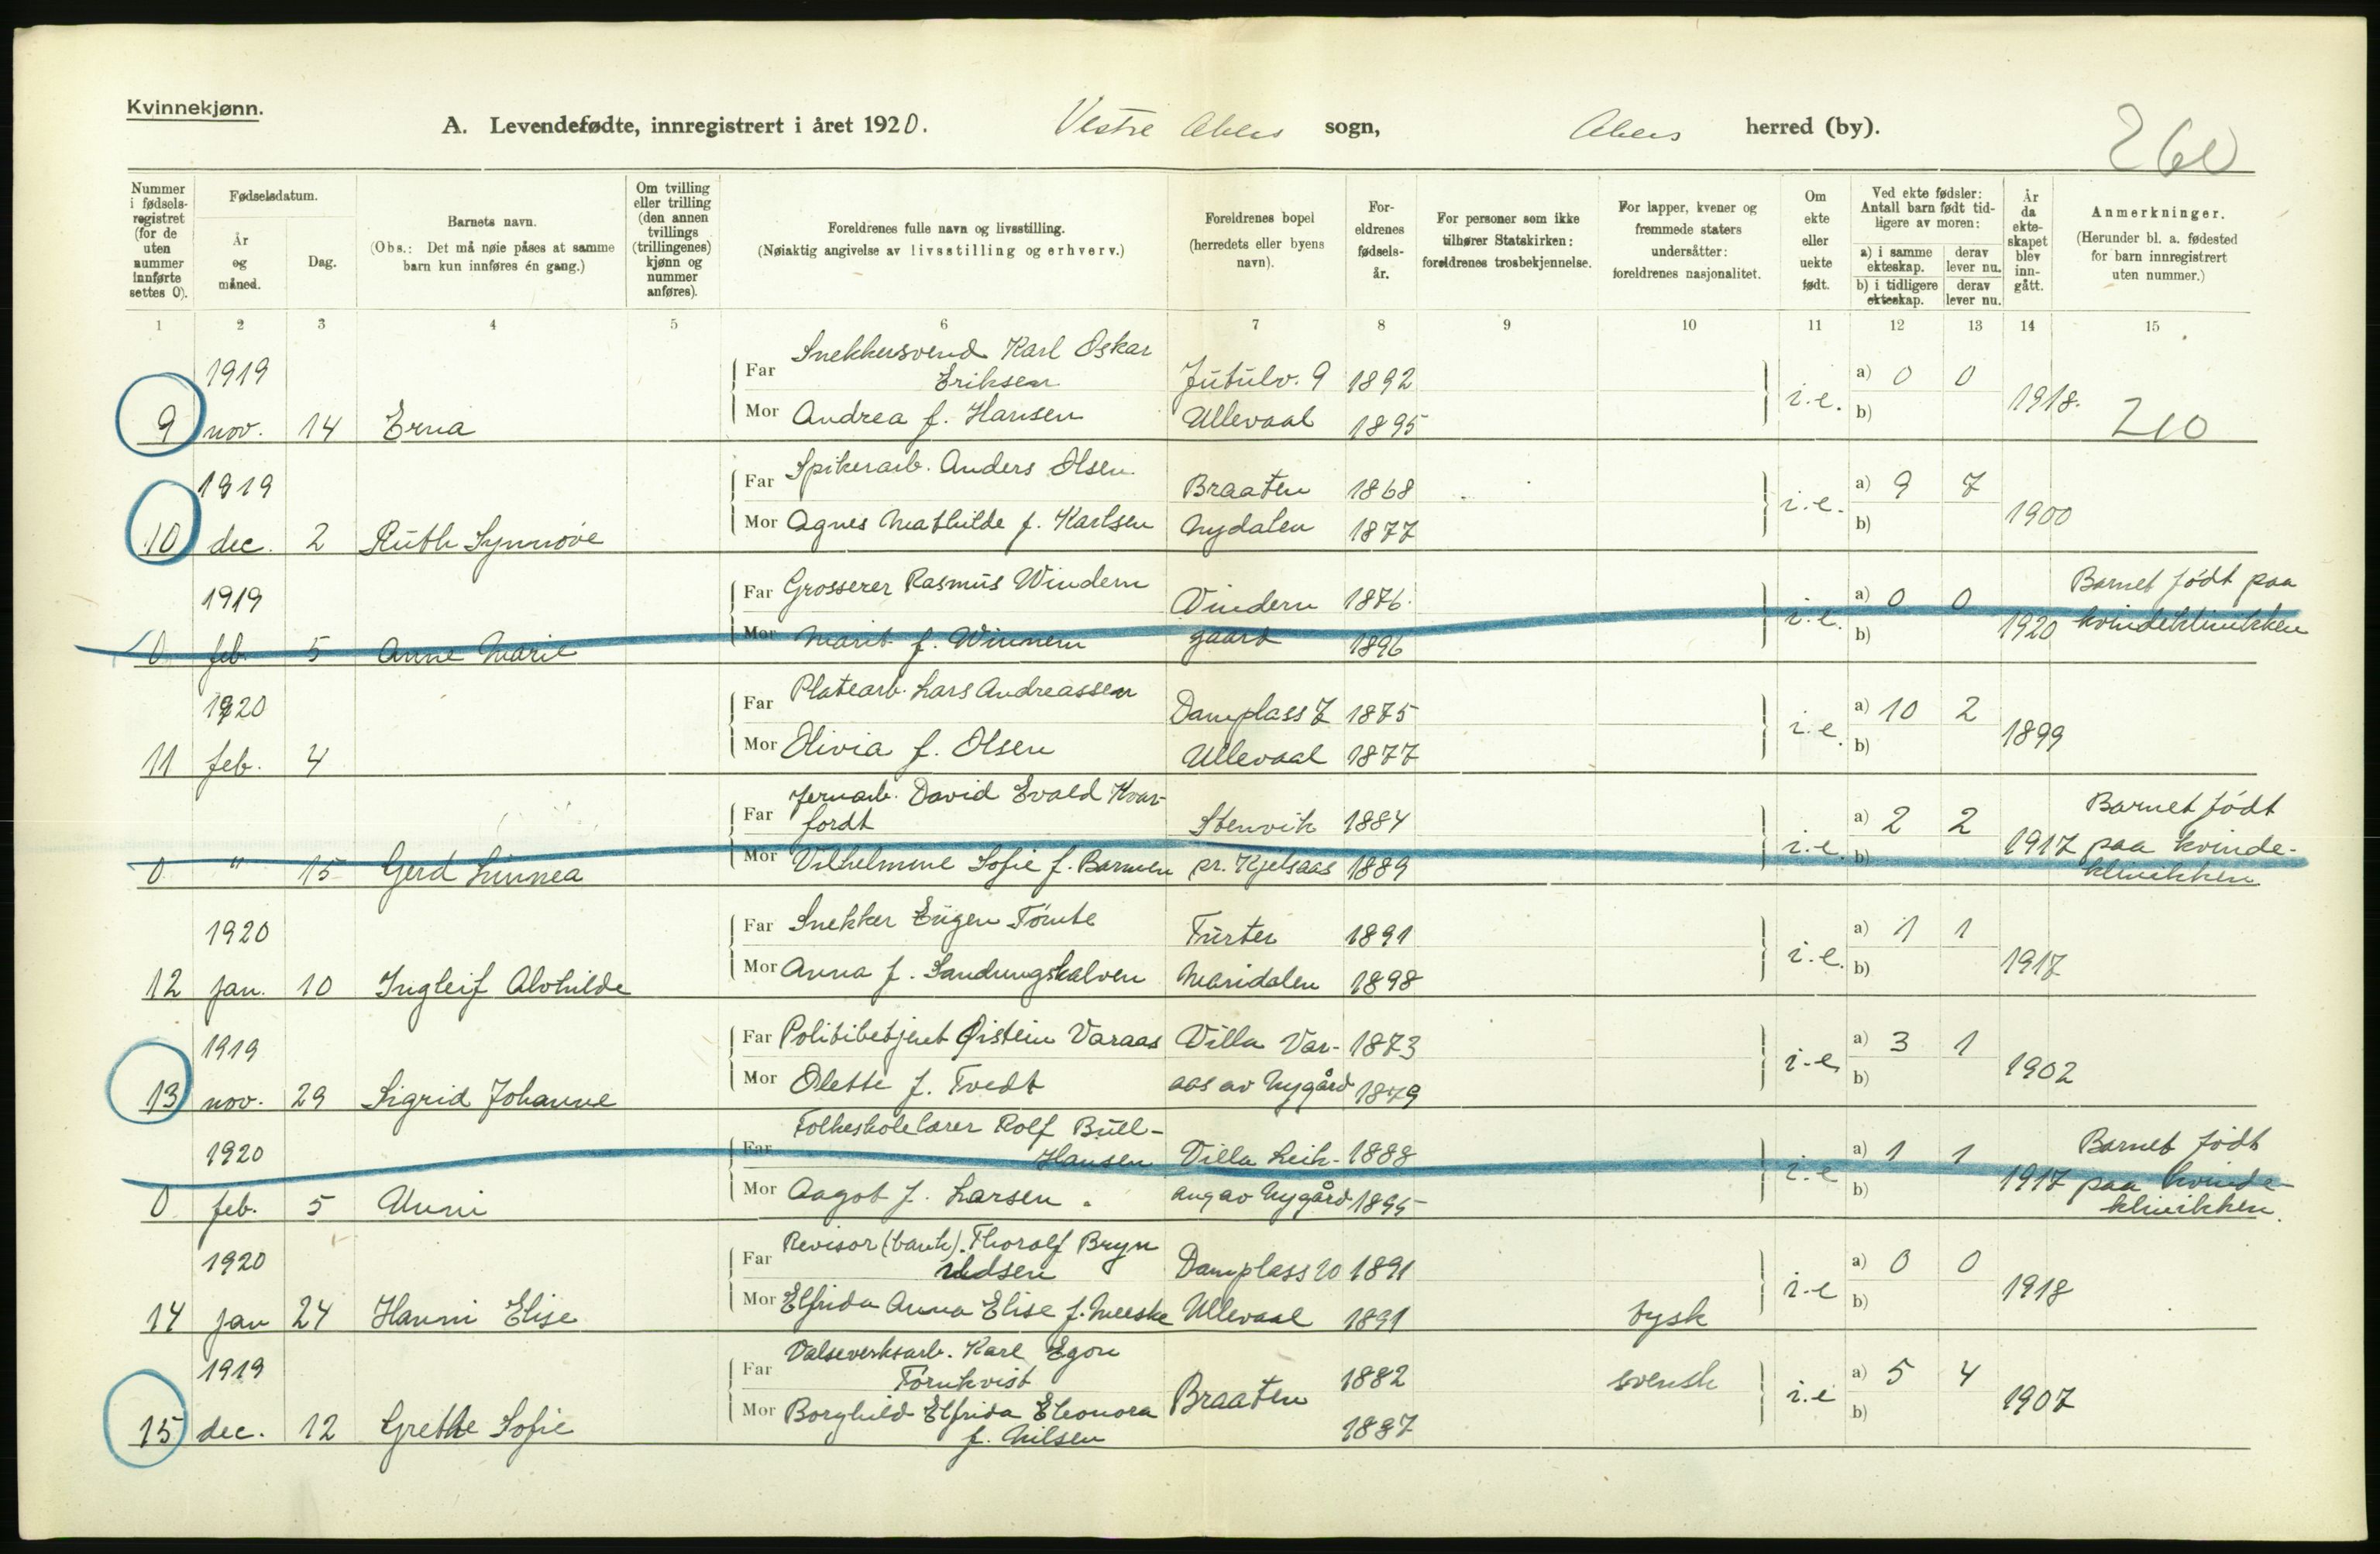 Kvinnekjønn.
A. Levendefødte, innregistrert i året 1920. Vestre Akers sogn, Akers herred (by). 260
Nummer i fødselsregistret (for de uten nummer innførte settes 0).
Fødselsdatum.
År og måned.
Dag.
Barnets navn.
(Obs.: Det må nøie påses at samme barn kun innføres én gang.)
Om tvilling eller trilling (den annen tvillings (trillingenes) kjønn og nummer anføres).
Foreldrenes fulle navn og livsstilling.
(Nøiaktig angivelse av livsstilling og erhverv.)
Foreldrenes bopel (herredets eller byens navn).
Foreldrenes fødselsår.
For personer som ikke tilhører Statskirken: foreldrenes trosbekjennelse.
For lapper, kvener og fremmede staters undersåtter: foreldrenes nasjonalitet.
Om ekte eller uekte født.
Ved ekte fødsler: Antall barn født tidligere av moren:
a) i samme ekteskap. derav lever nu.
b) i tidligere ekteskap. derav lever nu.
År da ekteskapet blev inngått.
Anmerkninger.
(Herunder bl. a. fødested for barn innregistrert uten nummer.)
1 2 3 4 5 6 7 8 9 10 11 12 13 14 15
1919 Far Snekkersvend Karl Oskar
Eriksen Jutulv. 9 1892 a) 0 0
9 nov. 14 Erna Mor Andrea f. Hansen Ullevaal 1895 i.e. b) 1918. 210
1919 Far Spikerarb. Anders Olsen Braaten 1868 a) 9 7
10 dec. 2 Ruth Synnøve Mor Agnes Mathilde f. Karlsen Nydalen 1877 i.e. b) 1900
1919 Far Grosserer Rasmus Windern Vindern 1876. a) 0 0 Barnet født paa
0 feb. 5 Anne Marie Mor Marit f. Winnem gaard 1896 i.e. b) 1920 kvindeklinikken
1920 Far Platearb. Lars Andreassen Damplass 7 1875 a) 10 2
11 feb. 4 Mor Olivia f. Olsen Ullevaal 1877 i.e. b) 1899
Far Jernarb. David Evald Kvar-
fordt Stenvik 1884 a) 2 2 Barnet født
0 " 15 Gerd Linnea Mor Vilhelmine Sofie f. Barmen pr. Kjelsaas 1889 i.e. b) 1917 paa kvinde-
klinikken
1920 Far Snekker Eugen Tømte Turter 1891 a) 1 1
12 jan. 10 Ingleif Alvhilde Mor Anna f. Sandungskalven Maridalen 1898 i.e. b) 1917
1919 Far Politibetjent Øistein Varaas Villa Var- 1873 a) 3 1
13 nov. 29 Sigrid Johanne Mor Olette f. Tvedt aas av Nygård 1879 i-e b) 1902
1920 Far Folkeskolelærer Rolf Bull-
Hansen Villa Leik- 1888 a) 1 1 Barnet født
0 feb. 5 Unni Mor Aagot f. Larsen. ang av Nygård 1895 i.e b) 1917 paa kvinde-
klinikken.
1920 Far Revisor (bank). Thoralf Bryn
Damplass 20 1891 a) 0 0
14 jan 24 Hanni Elise Mor Elfrida Anna Elise f. Meeske Ullevaal 1891 tysk i-e b) 1918
1919 Far Valseverksarb. Karl Egon
Törnkvist 1882 svensk a) 5 4
15 dec. 12 Grethe Sofie Mor Borghild Elfrida Eleonora Braaten i.e b) 1907
f. Nilsen 1887